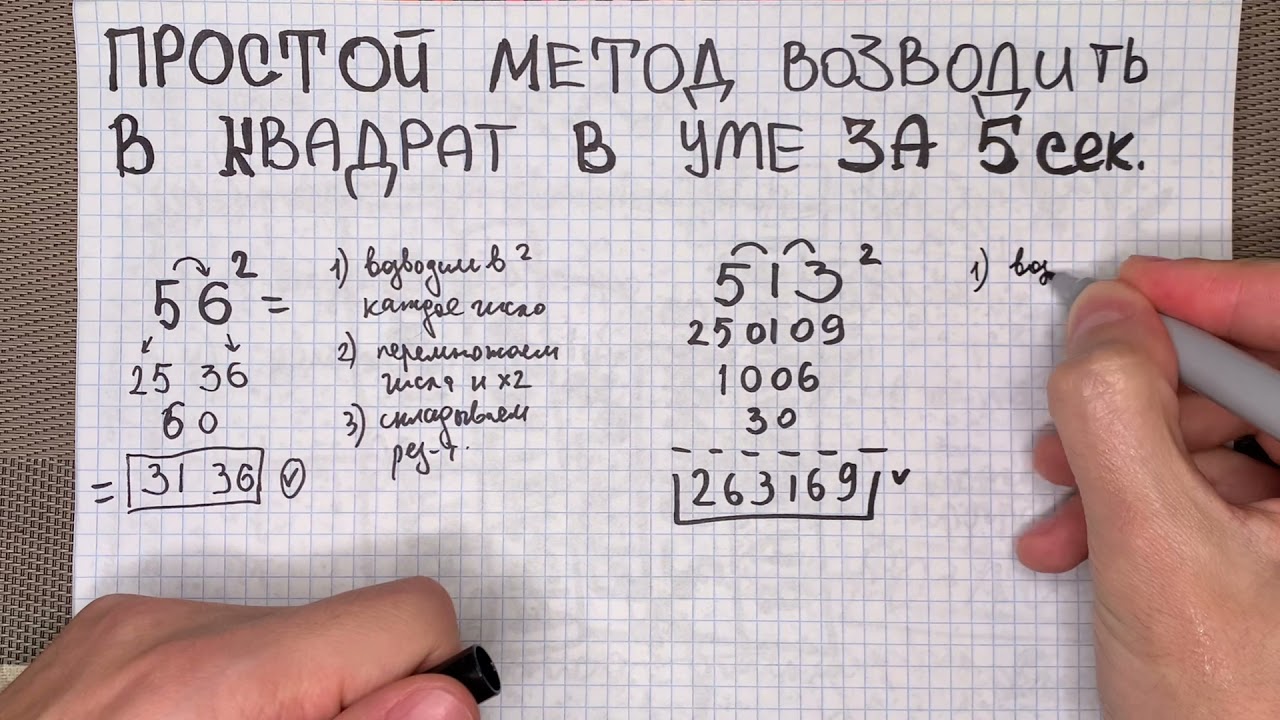 ПРОСТОЙ МЕТОД ВОЗВОДИТЬ
В КВАДРАТ В УМЕ ЗА 5 сек.
56² =
25 36
60
= 31 36
1) возводим в ²
каждое число
2) перемножаем
числа и х2
3) складываем
рез-т.
513²
250109
1006
30
263169
1) воз